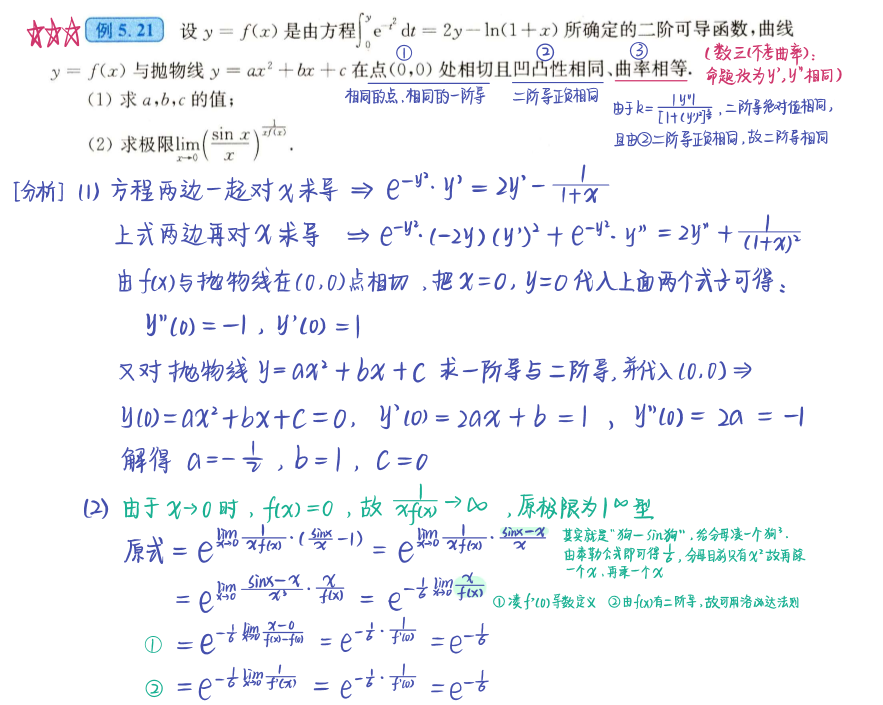 ☆☆☆ 例 5.21 设 y = f(x) 是由方程∫₀^y e^{-t²} dt = 2y - ln(1+x) 所确定的二阶可导函数,曲线
① ② ③
y = f(x) 与抛物线 y = ax² + bx + c 在点(0,0) 处相切且凹凸性相同、曲率相等.
(数三(不考曲率):
命题改为y',y''相同)
相同的点、相同的一阶导 二阶导正负相同
由于k=|y''|/[1+(y')²]^{3/2},二阶导绝对值相同,
且由②二阶导正负相同,故二阶导相同
(1) 求 a,b,c 的值;
(2) 求极限lim_{x→0}(sin x/x)^{1/(xf(x))}.
[分析] (1) 方程两边一起对x求导 ⇒ e^{-y²}·y' = 2y' - 1/(1+x)
上式两边再对x求导 ⇒ e^{-y²}·(-2y)(y')² + e^{-y²}·y'' = 2y'' + 1/(1+x)²
由f(x)与抛物线在(0,0)点相切,把x=0,y=0代入上面两个式子可得:
y''(0) = -1, y'(0) = 1
又对抛物线y=ax²+bx+c 求一阶导与二阶导,并代入(0,0)⇒
y(0)=ax²+bx+c=0, y'(0)=2ax+b=1, y''(0)=2a=-1
解得 a=-1/2, b=1, c=0
(2) 由于x→0时,f(x)=0,故 1/(xf(x))→∞,原极限为1^∞型
原式 = e^{lim_{x→0} 1/(xf(x))·(sinx/x -1)} = e^{lim_{x→0} 1/(xf(x))·(sinx-x)/x}
其实就是"狗-sin狗",给分母凑一个狗³.
由泰勒公式即可得1/6,分母目前只有x²故再除
一个x,再乘一个x
= e^{lim_{x→0} (sinx-x)/x³·x/f(x)} = e^{-1/6 lim_{x→0} x/f(x)}
①凑f'(0)导数定义 ②由f(x)有二阶导,故可用洛必达法则
① = e^{-1/6 lim_{x→0} (x-0)/(f(x)-f(0))} = e^{-1/6·1/f'(0)} = e^{-1/6}
② = e^{-1/6 lim_{x→0} 1/f'(x)} = e^{-1/6·1/f'(0)} = e^{-1/6}